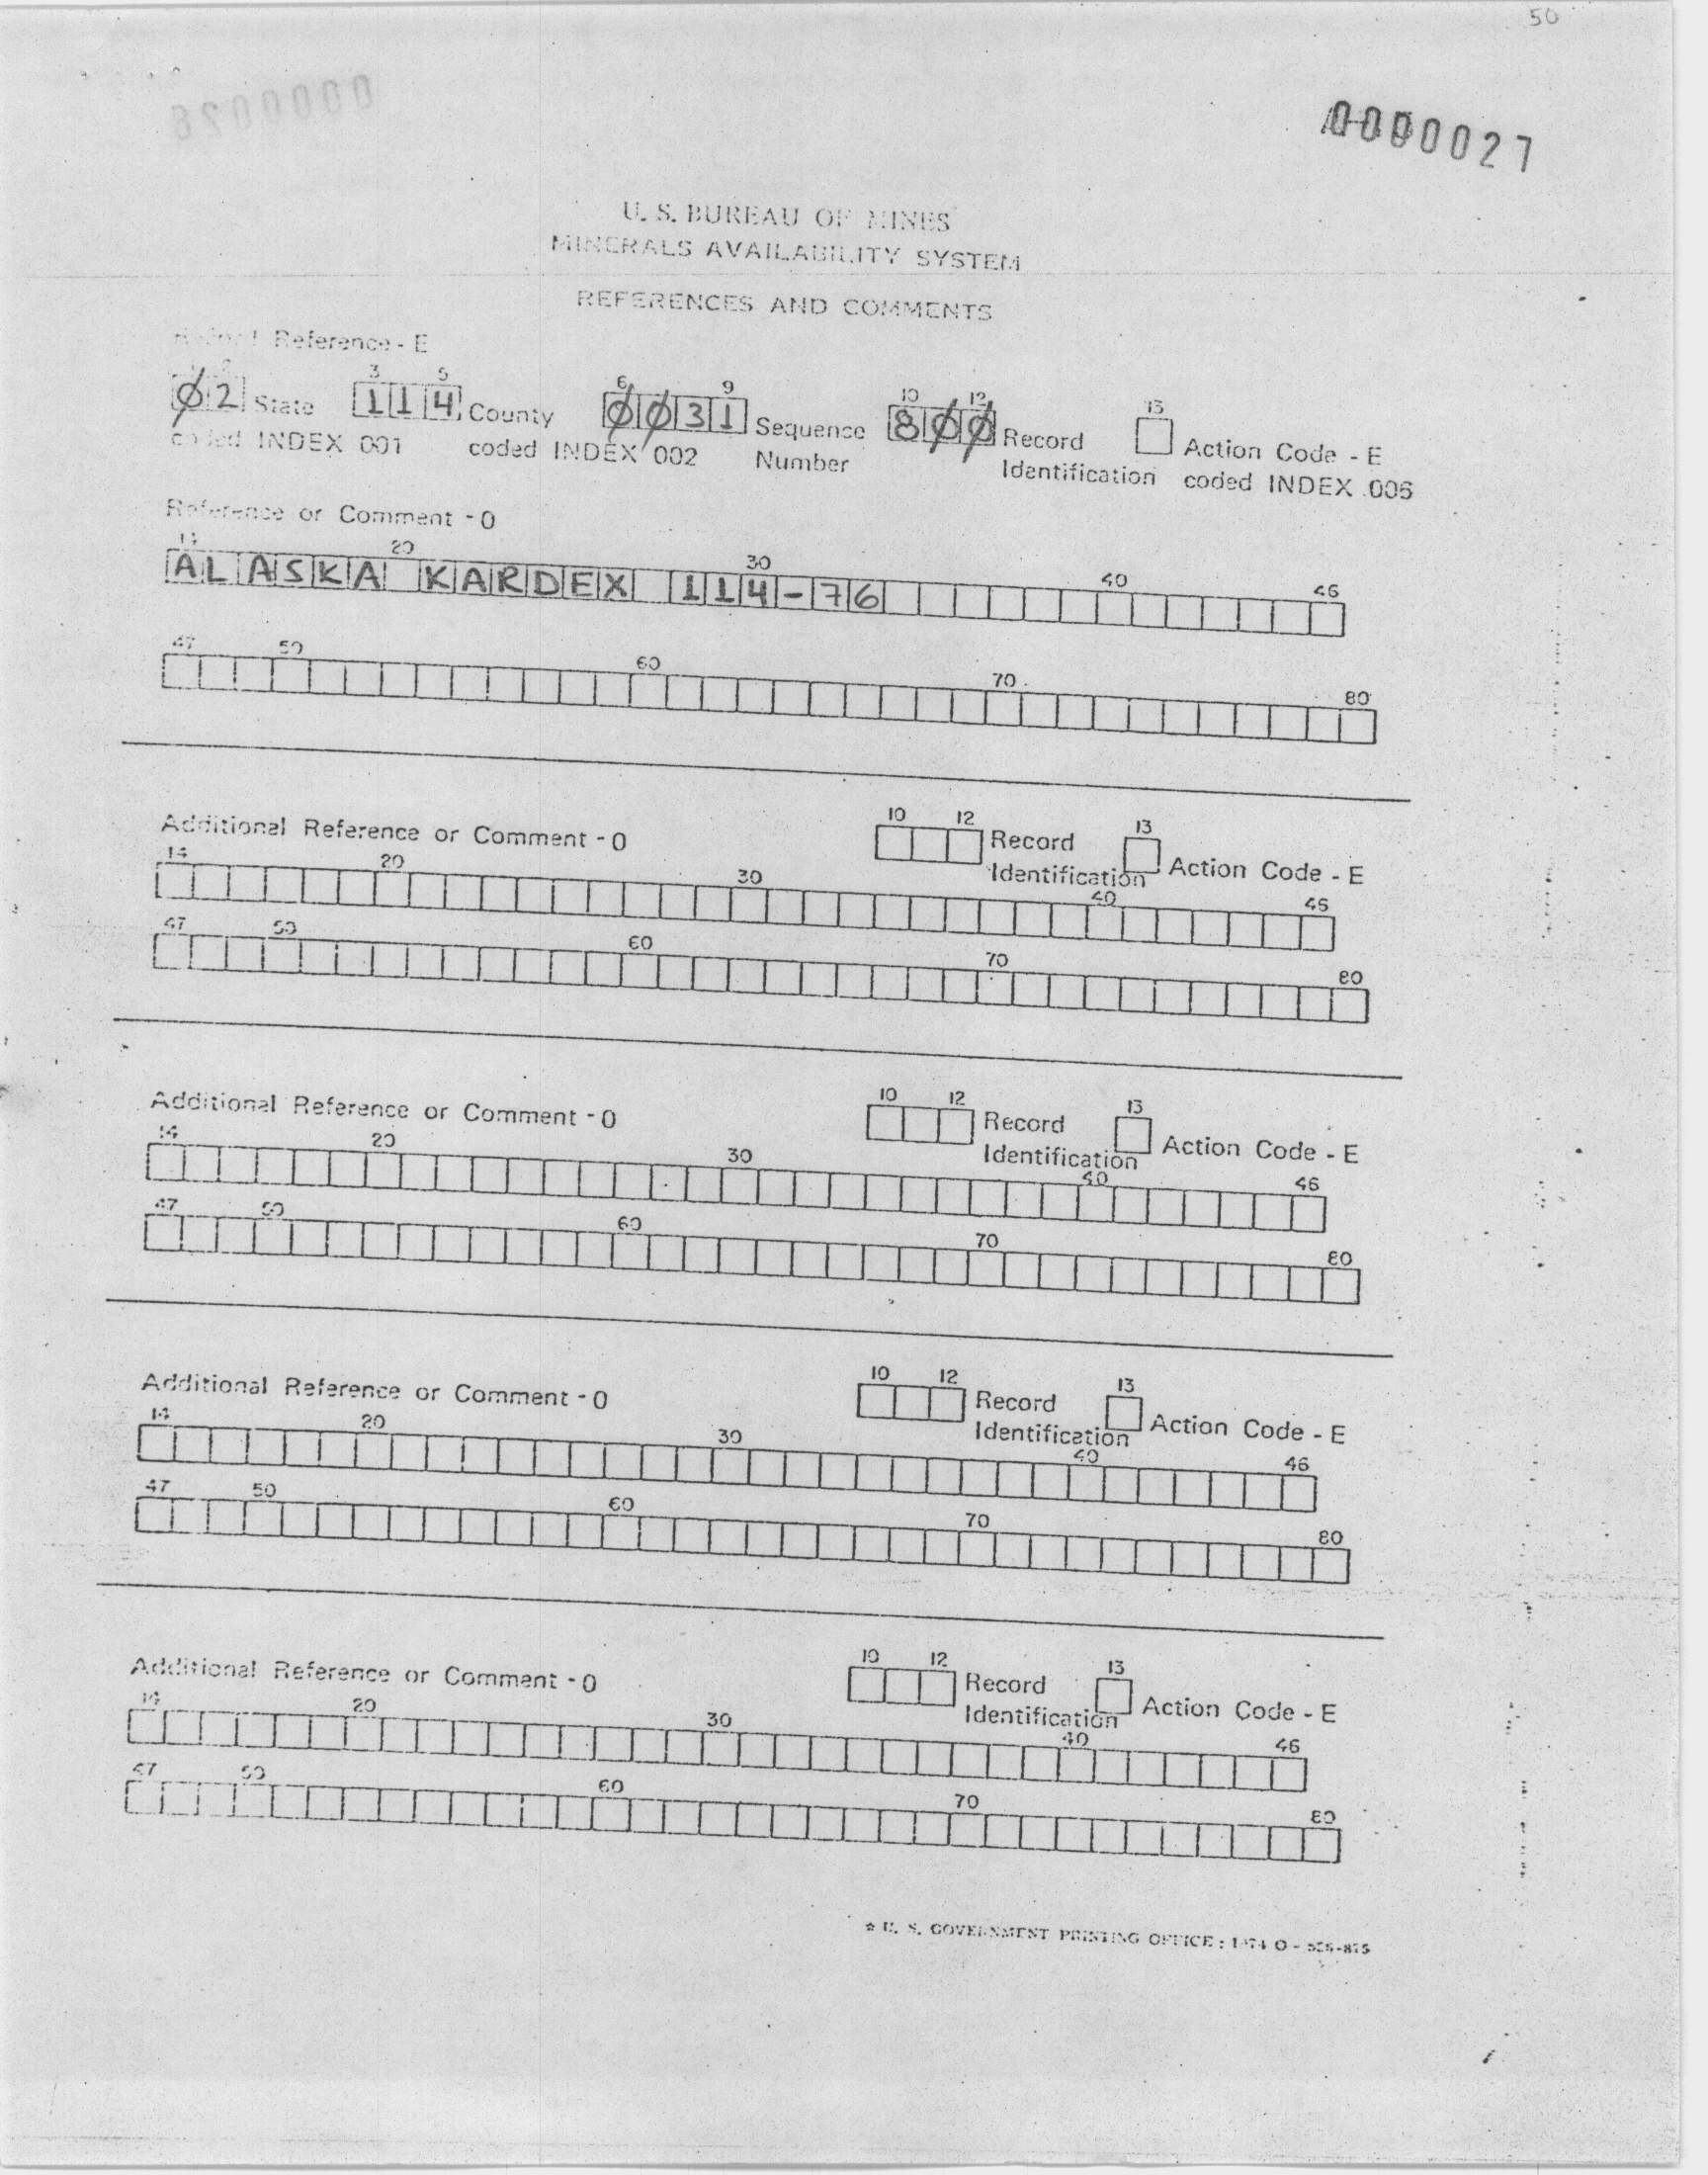 50
0000026
0000027
U. S. BUREAU OF MINES
MINERALS AVAILABILITY SYSTEM
REFERENCES AND COMMENTS
Reference - E
3 5 6 9 10 12 13
02 State 114 County 0031 Sequence 800 Record Action Code - E
coded INDEX 001 coded INDEX 002 Number Identification coded INDEX 006
Reference or Comment - O
14 20 30 40 46
ALASKA KARDEX 114-76
47 50 60 70 80
Additional Reference or Comment - O 10 12 Record 13
Identification Action Code - E
14 20 30 40 46
47 50 60 70 80
Additional Reference or Comment - O 10 12 Record 13
Identification Action Code - E
14 20 30 40 46
47 50 60 70 80
Additional Reference or Comment - O 10 12 Record 13
Identification Action Code - E
14 20 30 40 46
47 50 60 70 80
Additional Reference or Comment - O 10 12 Record 13
Identification Action Code - E
14 20 30 40 46
47 50 60 70 80
☆ U. S. GOVERNMENT PRINTING OFFICE : 1974 O -